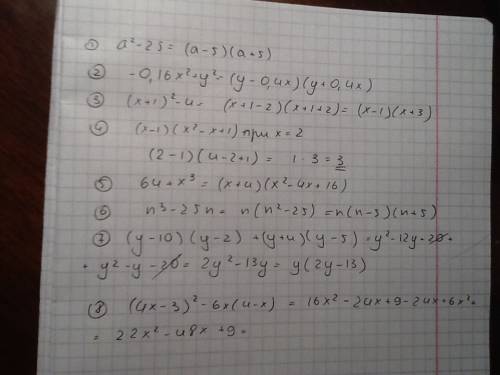 ① a²-25 = (a-5)(a+5)
② -0,16x²+y² = (y-0,4x)(y+0,4x)
③ (x+1)²-4 = (x+1-2)(x+1+2) = (x-1)(x+3)
④ (x-1)(x²-x+1) при x=2
(2-1)(4-2+1) = 1·3 = 3
⑤ 64+x³ = (x+4)(x²-4x+16)
⑥ n³-25n = n(n²-25) = n(n-5)(n+5)
⑦ (y-10)(y-2)+(y+4)(y-5) = y²-12y-20+
+ y²-y-20 = 2y²-13y = y(2y-13)
⑧ (4x-3)²-6x(4-x) = 16x²-24x+9-24x+6x² =
= 22x²-48x+9 =